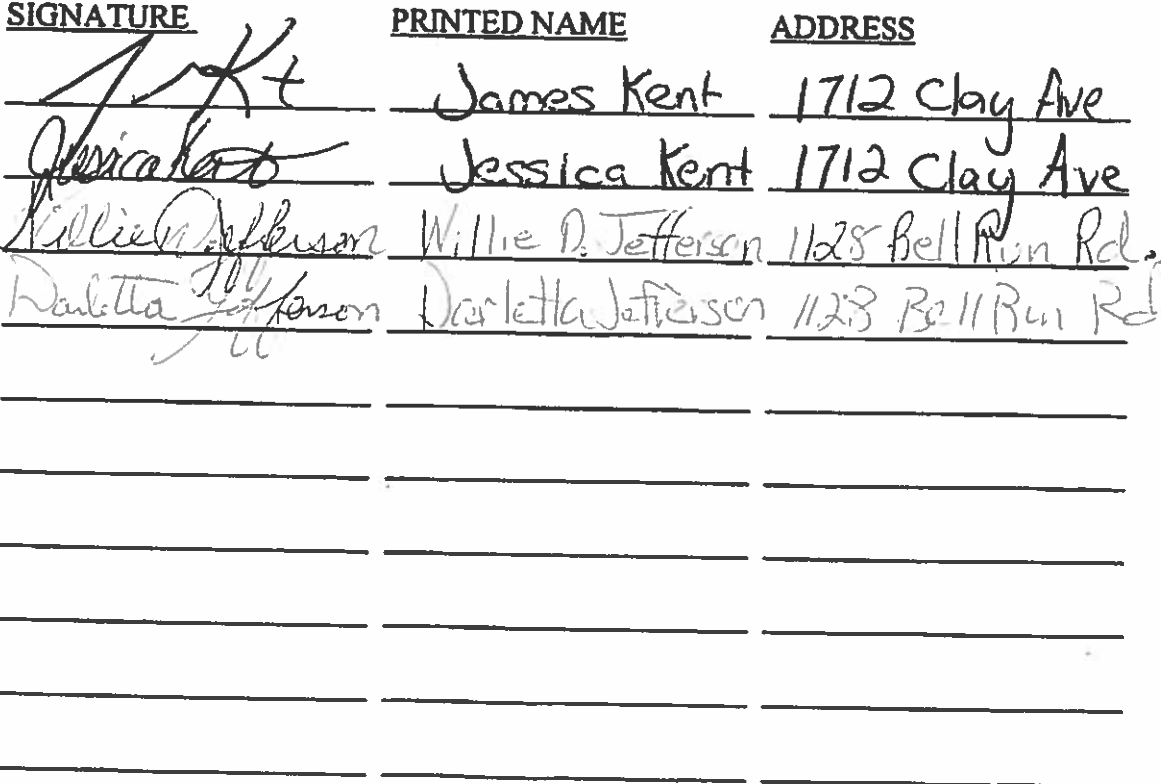 SIGNATURE PRINTED NAME ADDRESS
J Kt James Kent 1712 Clay Ave
Jessica Kent Jessica Kent 1712 Clay Ave
Willie D. Jefferson Willie D. Jefferson 1128 Bell Run Rd.
Darletta Jefferson Darletta Jefferson 1128 Bell Run Rd